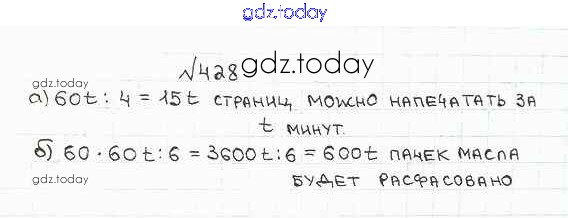 gdz.today
№428 gdz.today
gdz.today
а) 60t : 4 = 15t страниц можно напечатать за
t минут.
б) 60 · 60t : 6 = 3600t : 6 = 600t пачек масла
gdz.today
будет расфасовано